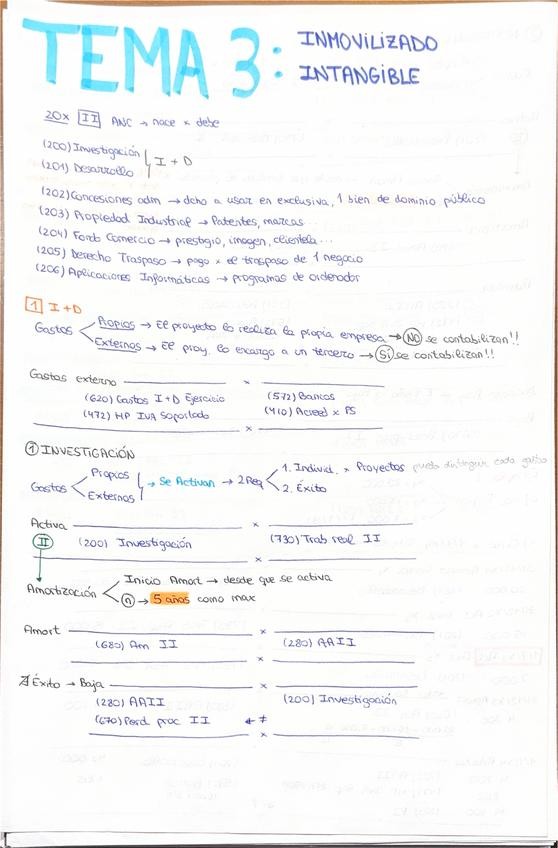 TEMA 3: INMOVILIZADO
INTANGIBLE
20x II ANC → nace x debe
(200) Investigación
(201) Desarrollo
I + D
(202) Concesiones adm → dcho a usar en exclusiva, 1 bien de dominio público
(203) Propiedad Industrial → Patentes, marcas...
(204) Fondo Comercio → prestigio, imagen, clientela...
(205) Derecho Traspaso → pago x el traspaso de 1 negocio
(206) Aplicaciones Informáticas → programas de ordenador
1 I + D
Gastos
Propios → El proyecto lo realiza la propia empresa → NO se contabilizan!!
Externos → El proy. lo encargo a un tercero → SÍ se contabilizan!!
Gastos externo x
(620) Gastos I+D Ejercicio (572) Bancos
(472) HP IVA Soportado (410) Acreed x PS
x
① INVESTIGACIÓN
Gastos
Propios
Externos
→ Se Activan → 2 Req
1. Individ. x Proyectos puedo distinguir cada gasto
2. Éxito
Activa x
II (200) Investigación (730) Trab real II
x
Amortización
Inicio Amort → desde que se activa
n → 5 años como max
Amort x
(680) Am II (280) AAII
x
∄ Éxito → Baja x
(280) AAII (200) Investigación
(670) Perd proc II ← ≠
x